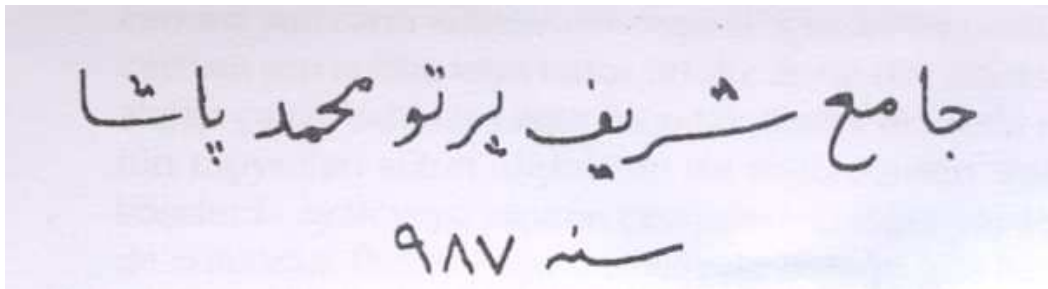 جامع شريف پرتو محمد پاشا
سنه ٩٨٧